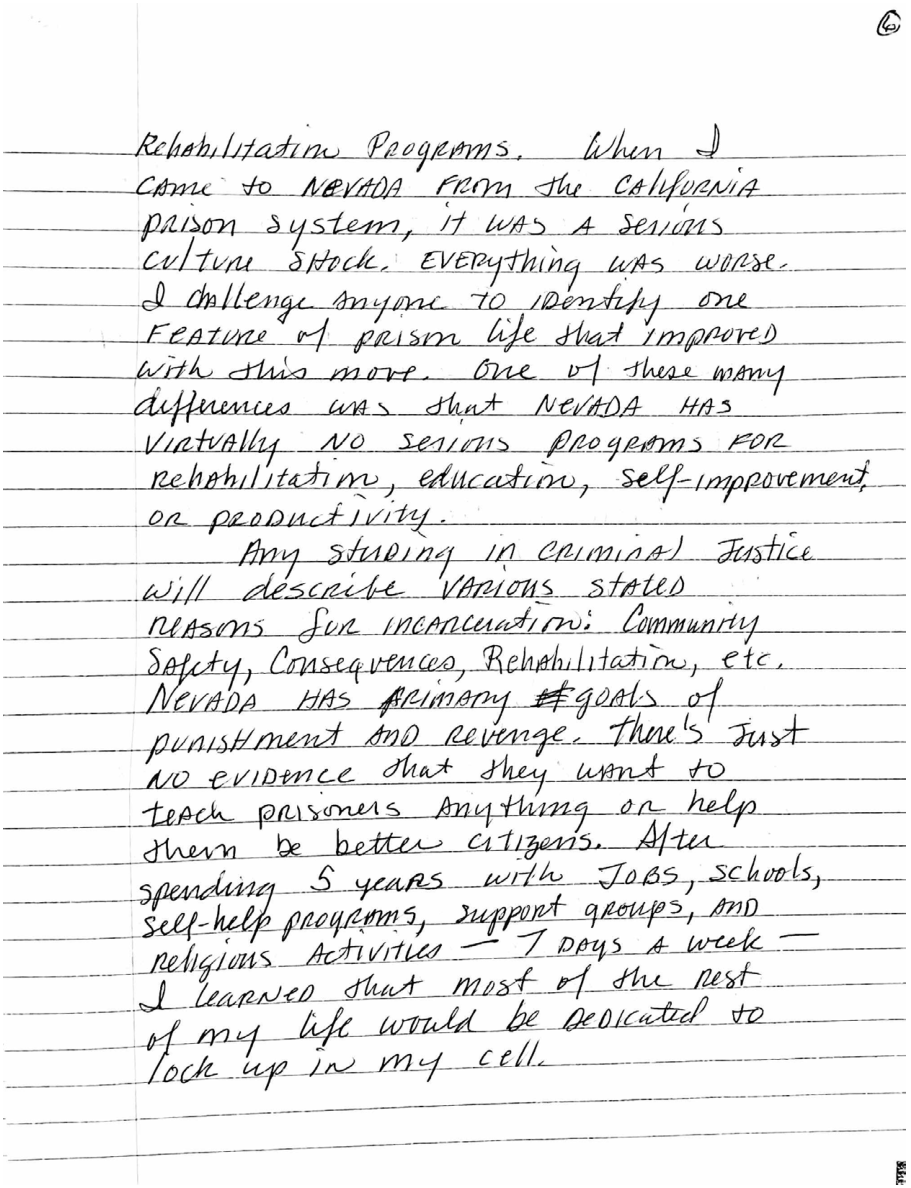 6
Rehabilitation Programs. When I
came to NEVADA FROM the CALIFORNIA
prison system, it was A serious
culture shock. EVERything was worse.
I challenge anyone to identify one
FEATURE of prison life that improved
with this move. One of these many
differences was that NEVADA HAS
virtually NO serious programs FOR
rehabilitation, education, self-improvement,
or productivity.
Any studing in criminal Justice
will describe various stated
reasons for incarceration: Community
Safety, Consequences, Rehabilitation, etc.
NEVADA HAS primary goals of
punishment AND revenge. There's Just
NO evidence that they want to
teach prisoners anything or help
them be better citizens. After
spending 5 years with JOBS, schools,
self-help programs, support groups, AND
religious Activities — 7 DAYS A week —
I learned that most of the rest
of my life would be dedicated to
lock up in my cell.